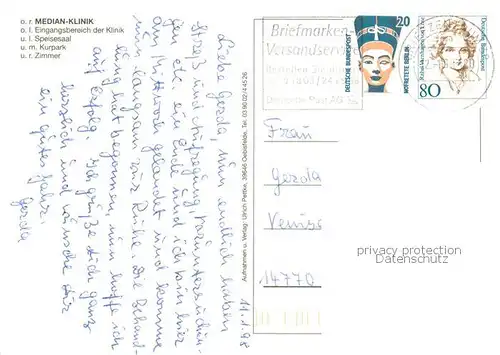 o. r. MEDIAN-KLINIK
o. l. Eingangsbereich der Klinik
u. l. Speisesaal
u. m. Kurpark
u. r. Zimmer
Briefmarken-
Versandservice
Deutsche Post AG
20
DEUTSCHE BUNDESPOST
NOFRETETE BERLIN
80
Deutsche Bundespost
11.1.98
Liebe Gerda, nun endlich haben
Streß und Aufregung, Voruntersuchun-
gen etc. ein Ende und ich bin hier
am Mittwoch gelandet und komme
nun langsam zur Ruhe. Die Behand-
lung hat begonnen, nun hoffe ich
auf Erfolg. Ich grüße dich ganz
herzlich und wünsche dir
ein gutes Jahr.
Gerda
Aufnahmen u. Verlag: Ulrich Pattke, 39646 Oebisfelde, Tel. 03 90 02/4 45 26
Frau
Gerda
14770
privacy protection
Datenschutz